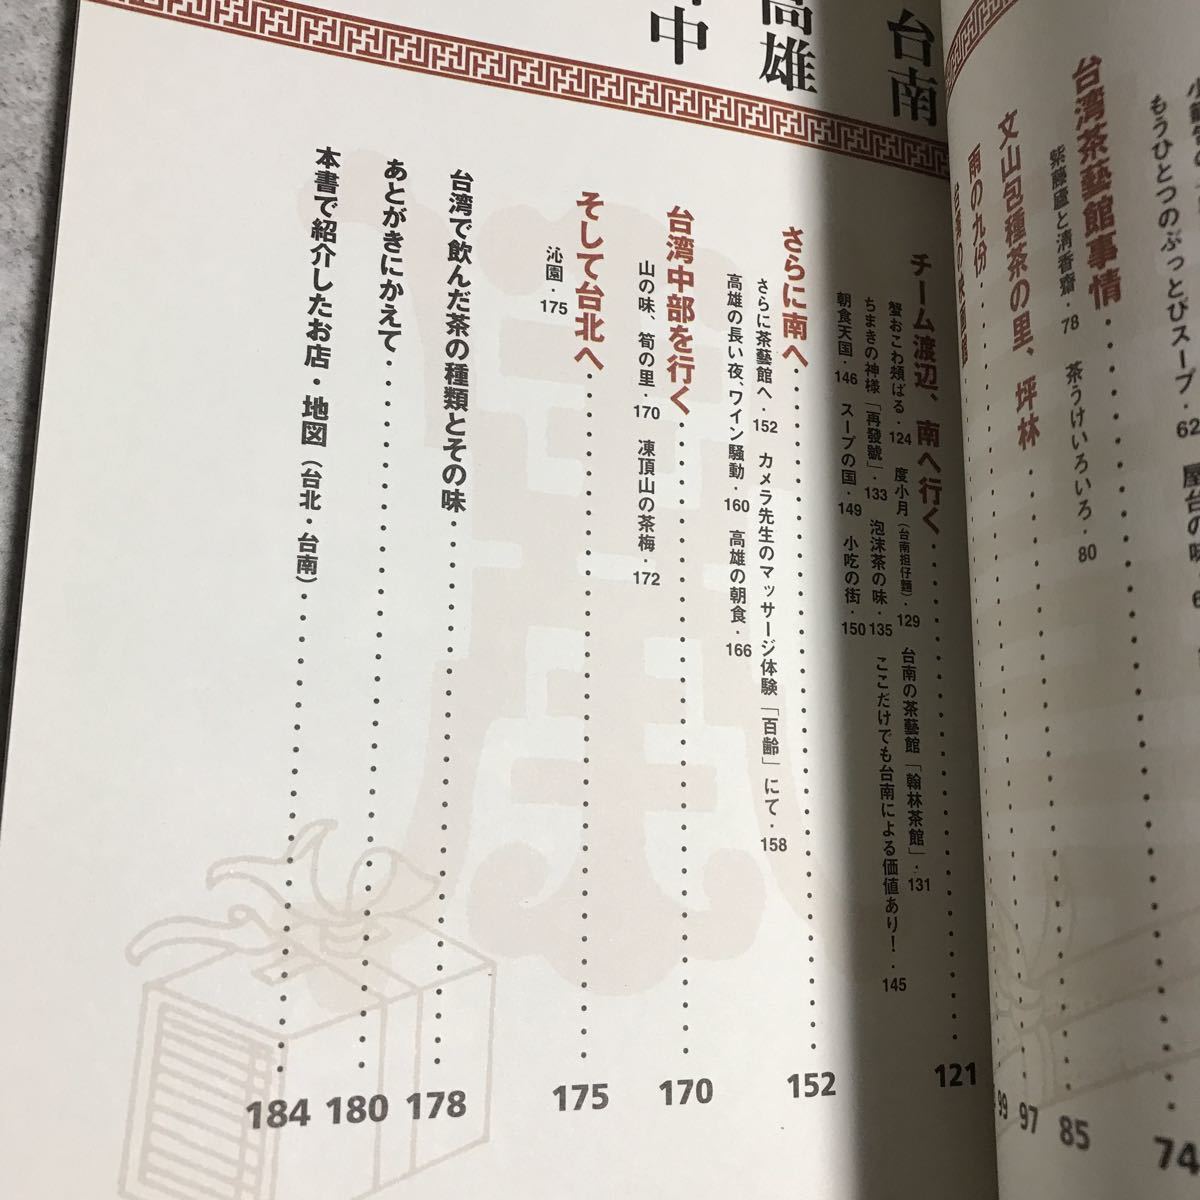 もうひとつのぶっとびスープ・62
屋台の味
台湾茶藝館事情・・・74
紫藤廬と清香齋・78　茶うけいろいろ・80
文山包種茶の里、坪林・・・85
雨の九份・・・97
99
台南
高雄
中
チーム渡辺、南へ行く・・・121
蟹おこわ頬ばる・124　度小月（台南担仔麺）・129　台南の茶藝館「翰林茶館」・131
ちまきの神様「再發號」・133　泡沫茶の味・135　ここだけでも台南による価値あり！・145
朝食天国・146　スープの国・149　小吃の街・150
さらに南へ・・・152
さらに茶藝館へ・152　カメラ先生のマッサージ体験「百齢」にて・158
高雄の長い夜、ワイン騒動・160　高雄の朝食・166
台湾中部を行く・・・170
山の味、筍の里・170　凍頂山の茶梅・172
そして台北へ・・・175
沁園・175
台湾で飲んだ茶の種類とその味・・・178
あとがきにかえて・・・180
本書で紹介したお店・地図（台北・台南）・・・184